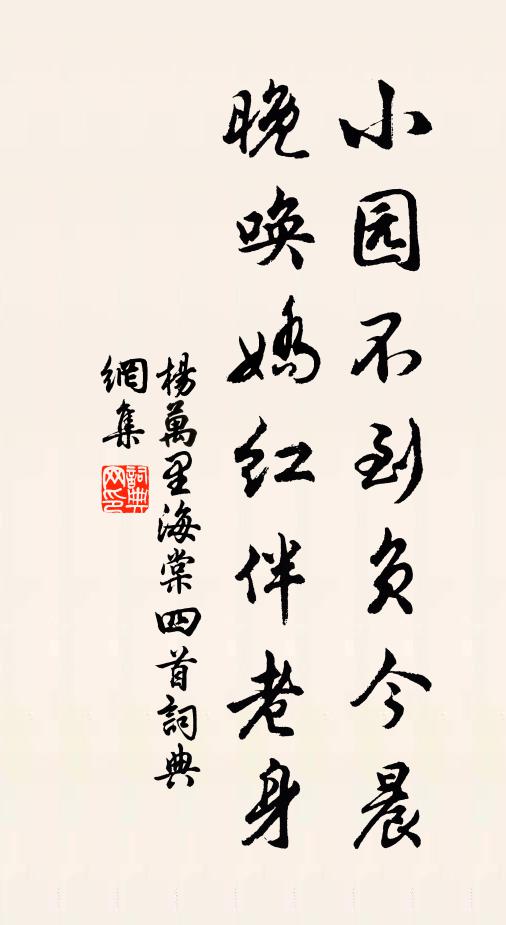 小园不到负今晨
晚唤娇红伴老身
楊萬里海棠四首詞典
網集
詞典網印